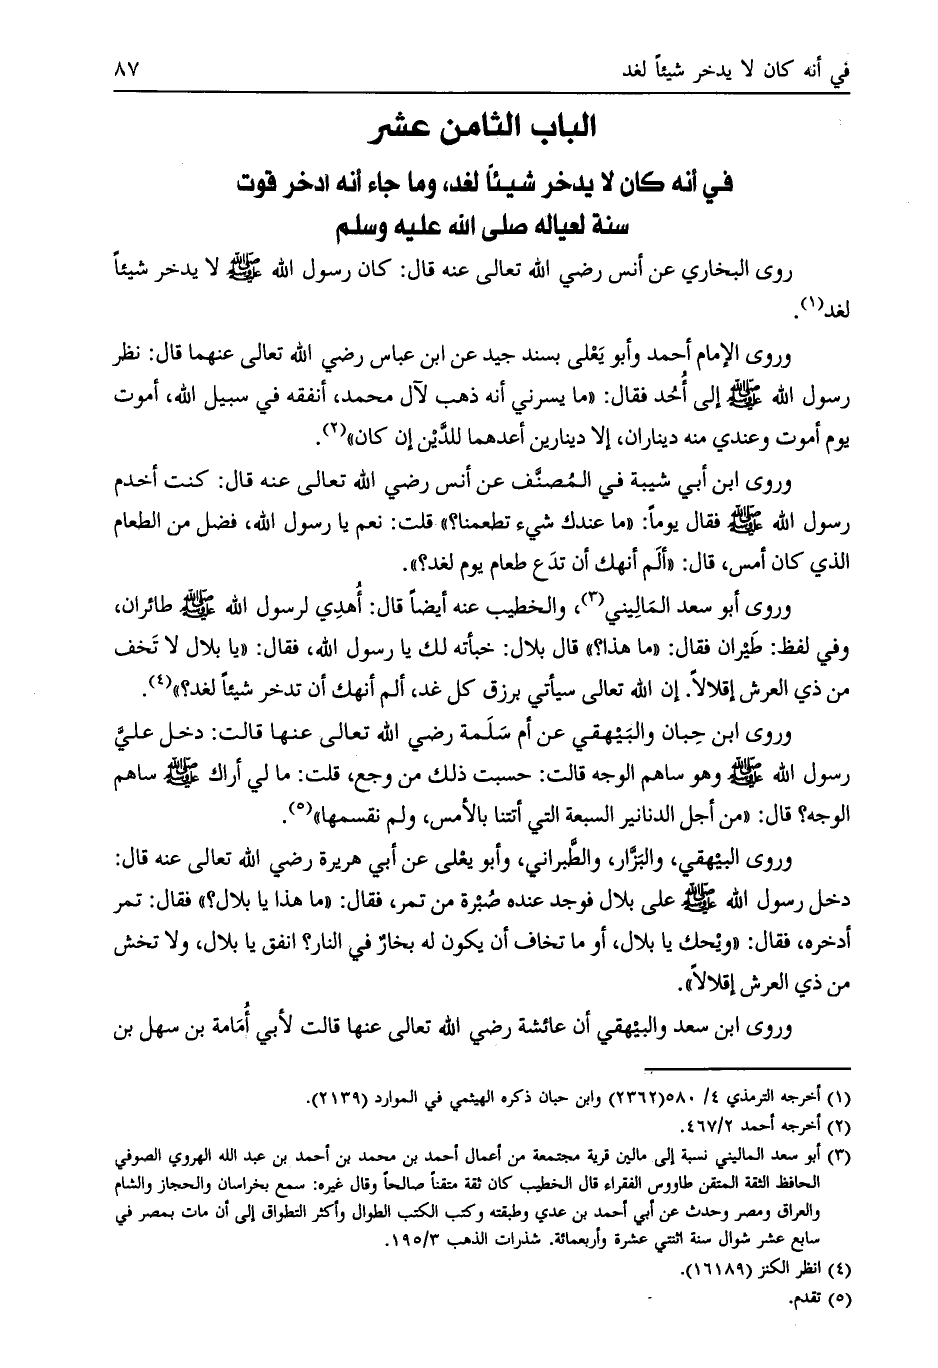 في أنه كان لا يدخر شيئاً لغد ٨٧
الباب الثامن عشر
في أنه كان لا يدخر شيئاً لغد، وما جاء أنه ادخر قوت
سنة لعياله صلى الله عليه وسلم
روى البخاري عن أنس رضي الله تعالى عنه قال: كان رسول الله ﷺ لا يدخر شيئاً
لغد(١).
وروى الإمام أحمد وأبو يَعْلى بسند جيد عن ابن عباس رضي الله تعالى عنهما قال: نظر
رسول الله ﷺ إلى أُحُد فقال: «ما يسرني أنه ذهب لآل محمد، أنفقه في سبيل الله، أموت
يوم أموت وعندي منه ديناران، إلا دينارين أعدهما للدَّيْن إن كان»(٢).
وروى ابن أبي شيبة في المُصنَّف عن أنس رضي الله تعالى عنه قال: كنت أخدم
رسول الله ﷺ فقال يوماً: «ما عندك شيء تطعمنا؟» قلت: نعم يا رسول الله، فضل من الطعام
الذي كان أمس، قال: «ألَم أنهك أن تدَع طعام يوم لغد؟».
وروى أبو سعد المَالِيني(٣)، والخطيب عنه أيضاً قال: أُهدِي لرسول الله ﷺ طائران،
وفي لفظ: طَيْران فقال: «ما هذا؟» قال بلال: خبأته لك يا رسول الله، فقال: «يا بلال لا تَخف
من ذي العرش إقلالاً. إن الله تعالى سيأتي برزق كل غد، ألم أنهك أن تدخر شيئاً لغد؟»(٤).
وروى ابن حِبان والبَيْهقي عن أم سَلَمة رضي الله تعالى عنها قالت: دخل عليَّ
رسول الله ﷺ وهو ساهم الوجه قالت: حسبت ذلك من وجع، قلت: ما لي أراك ﷺ ساهم
الوجه؟ قال: «من أجل الدنانير السبعة التي أتتنا بالأمس، ولم نقسمها»(٥).
وروى البيْهقي، والبَزَّار، والطَّبراني، وأبو يعْلى عن أبي هريرة رضي الله تعالى عنه قال:
دخل رسول الله ﷺ على بلال فوجد عنده صُبْرة من تمر، فقال: «ما هذا يا بلال؟» فقال: تمر
أدخره، فقال: «ويْحك يا بلال، أو ما تخاف أن يكون له بخارٌ في النار؟ انفق يا بلال، ولا تخش
من ذي العرش إقلالاً».
وروى ابن سعد والبيْهقي أن عائشة رضي الله تعالى عنها قالت لأبي أُمَامة بن سهل بن
(١) أخرجه الترمذي ٤/ ٥٨٠(٢٣٦٢) وابن حبان ذكره الهيثمي في الموارد (٢١٣٩).
(٢) أخرجه أحمد ٤٦٧/٢.
(٣) أبو سعد الماليني نسبة إلى مالين قرية مجتمعة من أعمال أحمد بن محمد بن أحمد بن عبد الله الهروي الصوفي
الحافظ الثقة المتقن طاووس الفقراء قال الخطيب كان ثقة متقناً صالحاً وقال غيره: سمع بخراسان والحجاز والشام
والعراق ومصر وحدث عن أبي أحمد بن عدي وطبقته وكتب الكتب الطوال وأكثر التطواق إلى أن مات بمصر في
سابع عشر شوال سنة اثنتي عشرة وأربعمائة. شذرات الذهب ١٩٥/٣.
(٤) انظر الكنز (١٦١٨٩).
(٥) تقدم.